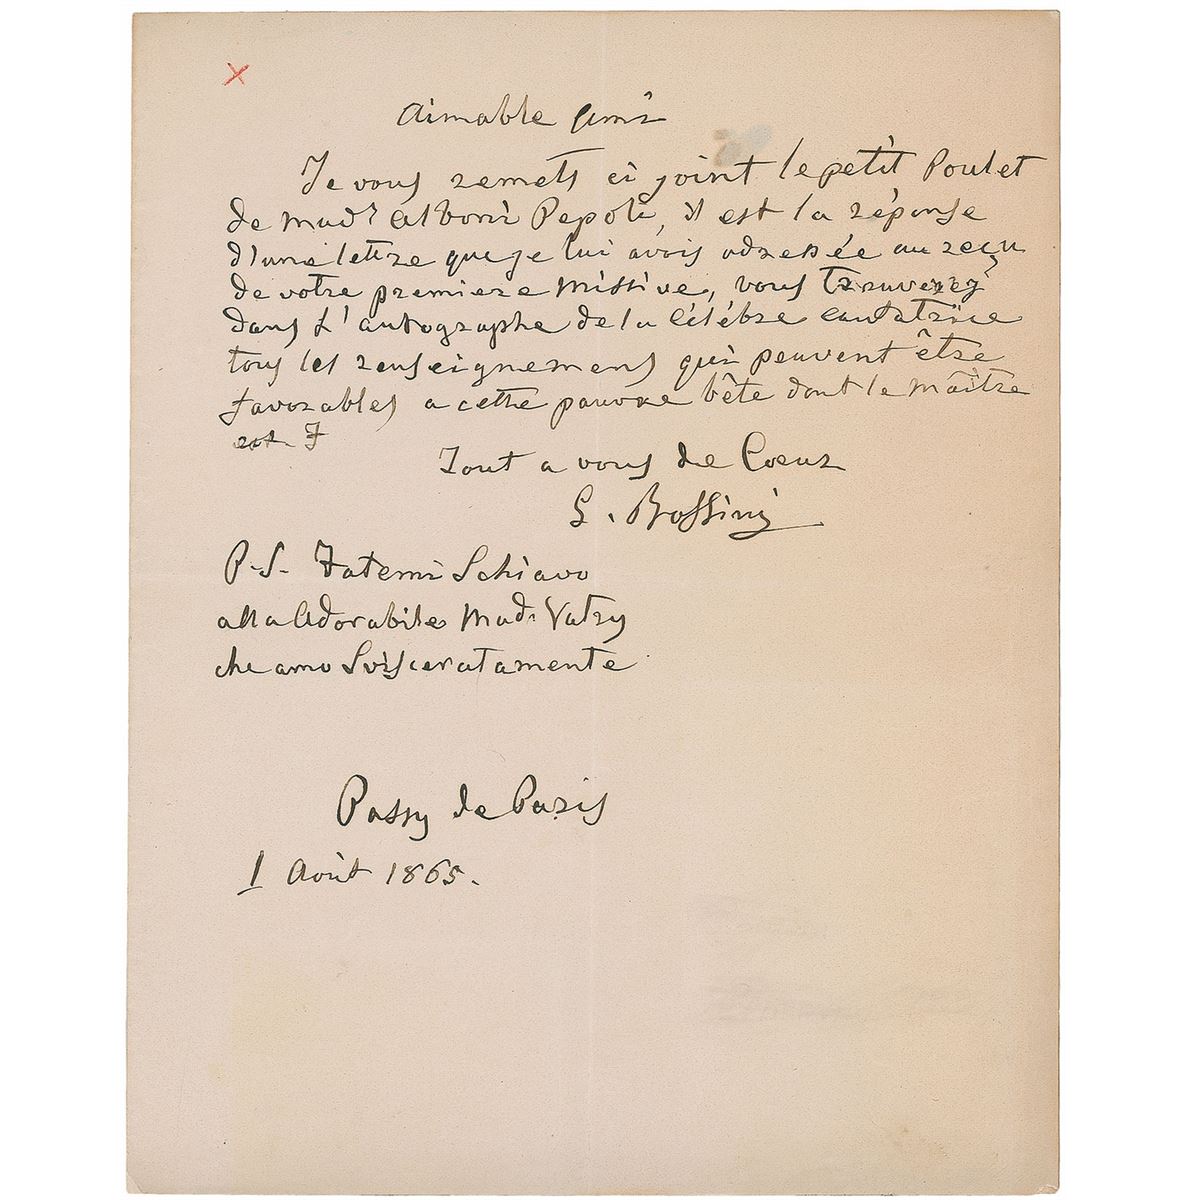 Aimable Ami
Je vous remets ci joint le petit Poulet
de Mad.e Alboni Pepoli, il est la réponse
d'une lettre que je lui avois adressée au reçu
de votre premiere Missive, vous trouverez
dans L'autographe de la Célébre Cantatrice
tous les renseignemens qui peuvent être
favorables a cette pauvre bête dont le Maître
est
Tout a vous de Coeur
G. Rossini
P.S. Fatemi Schiavo
alla Adorabile Mad. Vatry
che amo Svisceratamente
Passy de Paris
1 Août 1865.